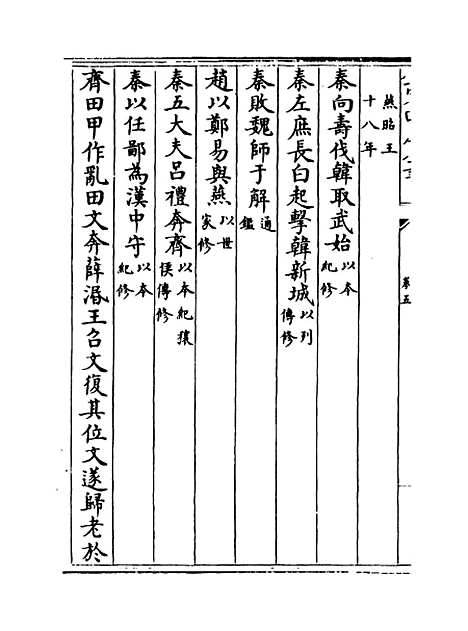 燕昭王
十八年
秦向壽伐韓取武始以本紀修
秦左庶長白起擊韓新城以列傳修
秦敗魏師于解通鑑
趙以鄭易與燕以世家修
秦五大夫呂禮奔齊以本紀穰侯傳修
秦以任鄙為漢中守以本紀修
齊田甲作亂田文奔薛湣王召文復其位文遂歸老於
卷五